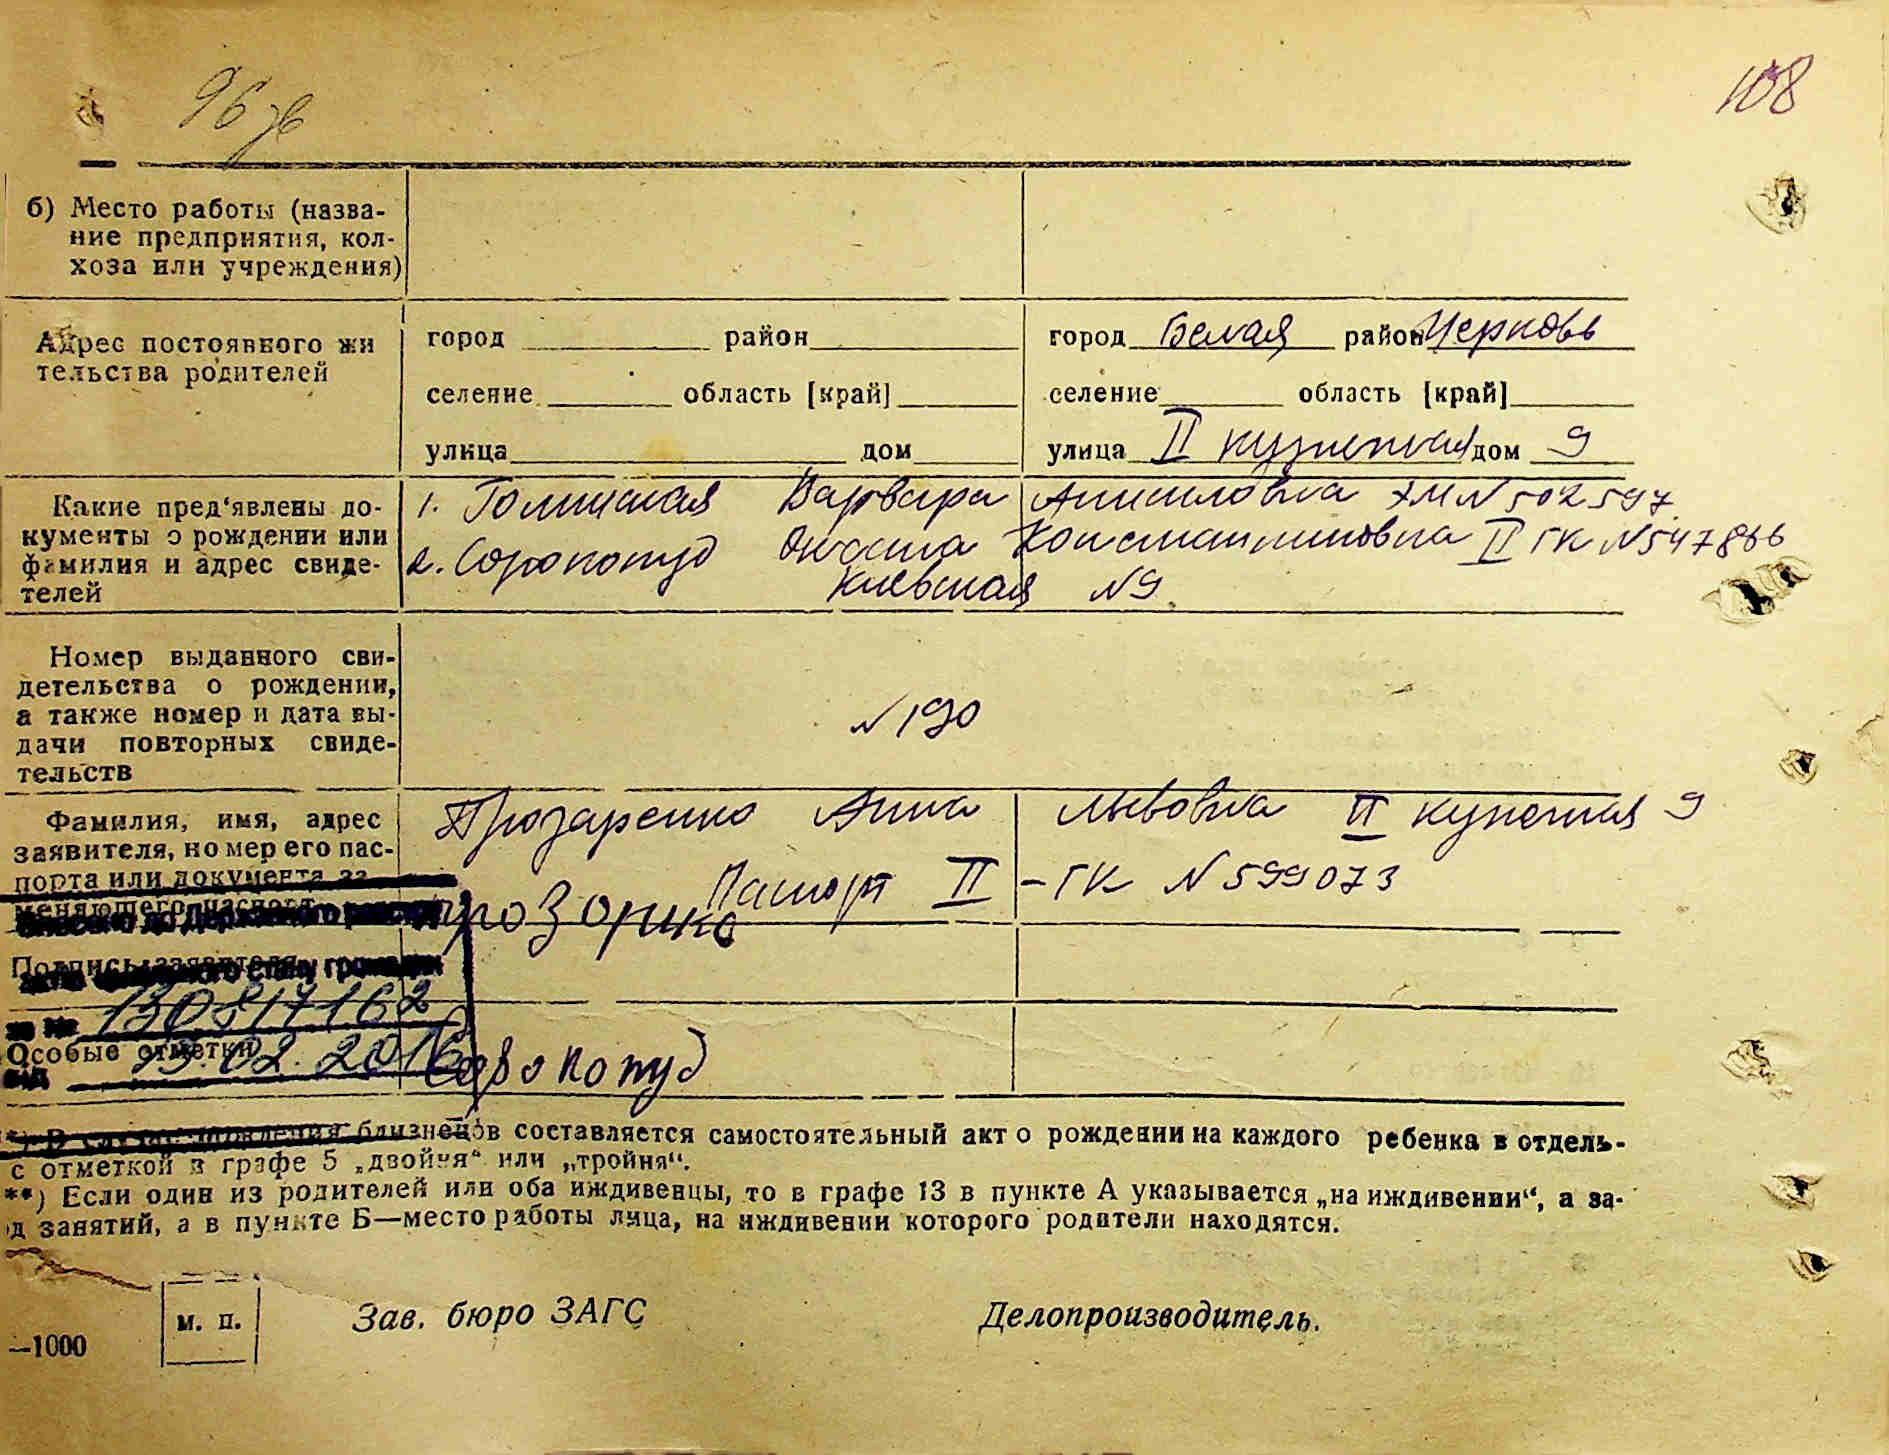 108
б) Место работы (назва-
ние предприятия, кол-
хоза или учреждения)
Адрес постоянного жи
тельства родителей
город район
селение область [край]
улица дом
город Белая район Церковь
селение область [край]
улица II дом 9
Какие пред'явлены до-
кументы о рождении или
фамилия и адрес свиде-
телей
1. Варвара N 502597
2. Сорокопуд Оксана Константиновна II ГК N 547866
Киевская N 9
Номер выданного сви-
детельства о рождении,
а также номер и дата вы-
дачи повторных свиде-
тельств
N 190
Фамилия, имя, адрес
заявителя, номер его пас-
порта или документа за
меняющего паспорт
Прозаренко Анна Львовна II 9
Паспорт II - ГК N 599073
Подпись заявителя
актів цивільного стану громадян
за № 130817162
Особые отметки
від .02.2016
Сорокопуд
*) В случае рождения близнецов составляется самостоятельный акт о рождении на каждого ребенка в отдель-
с отметкой в графе 5 „двойня“ или „тройня“.
**) Если один из родителей или оба иждивенцы, то в графе 13 в пункте А указывается „на иждивении“, а за-
д занятий, а в пункте Б—место работы лица, на иждивении которого родители находятся.
м. п.
Зав. бюро ЗАГС
Делопроизводитель.
—1000